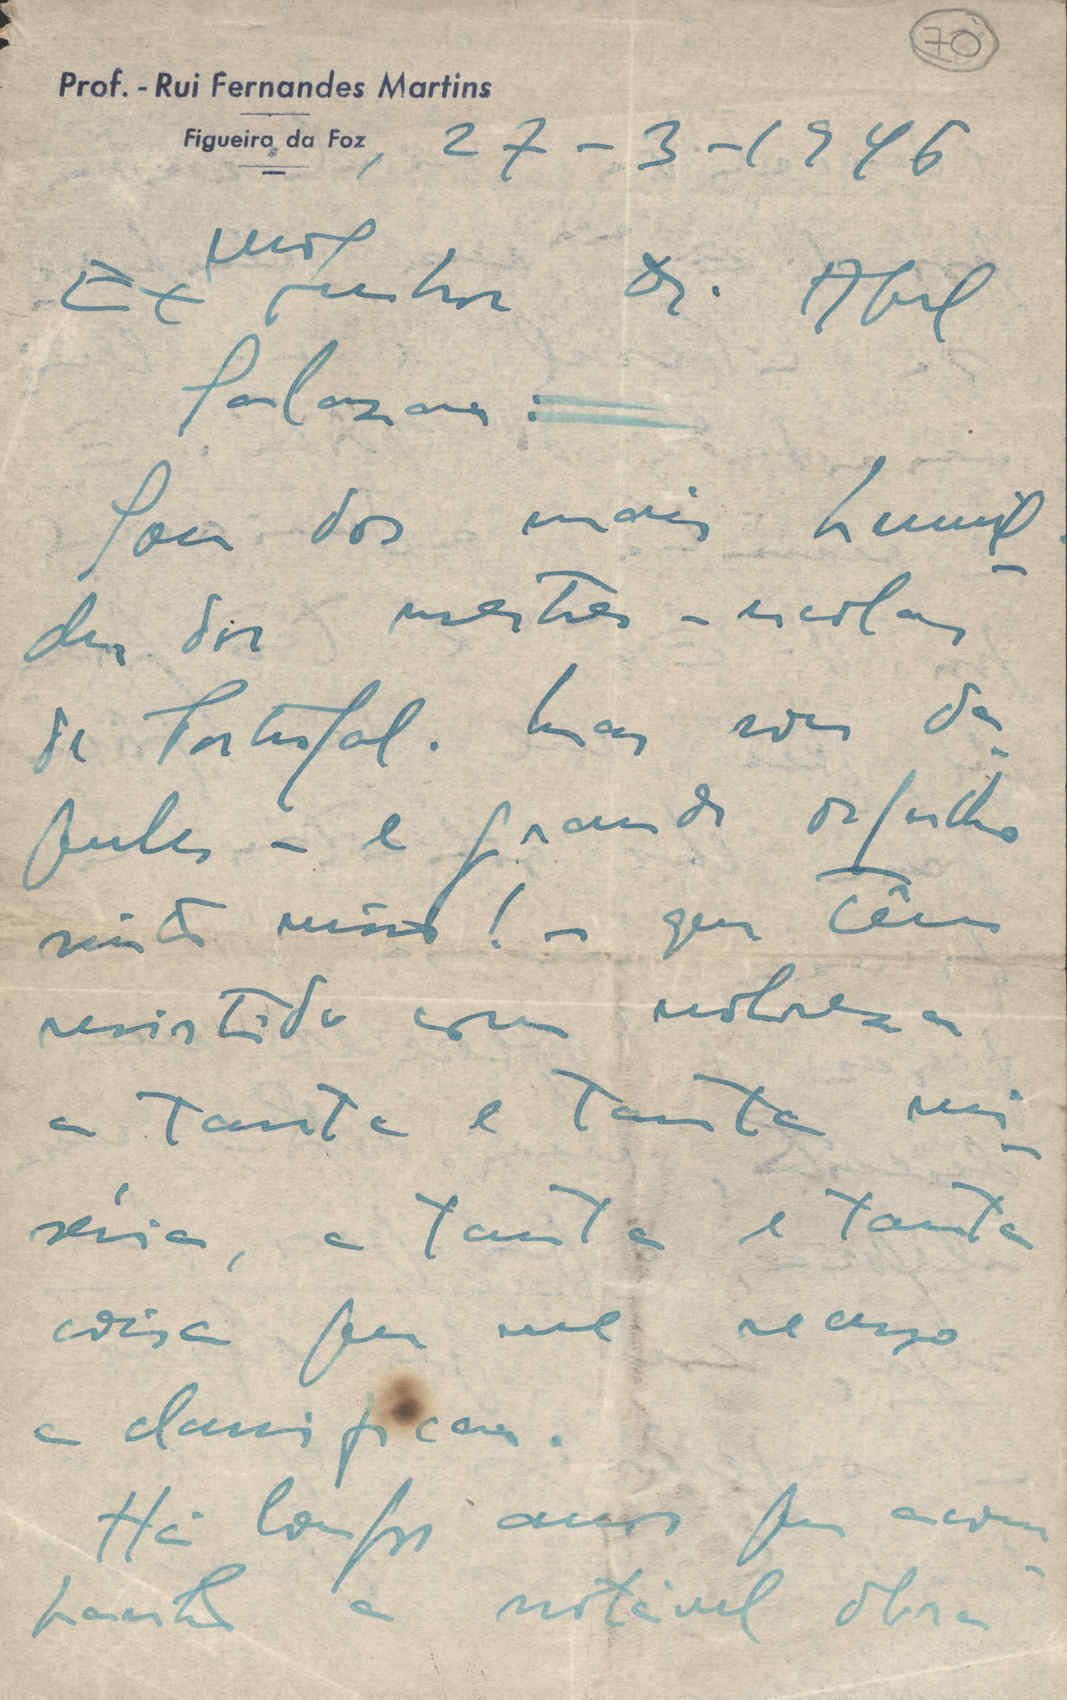 70
Prof. - Rui Fernandes Martins
Figueira da Foz
, 27-3-1946
Exmo Senhor Dr. Abel
Salazar:
Sou dos mais humil-
des dos mestres-escolas
de Portugal. Mas sou da-
queles - e grande orgulho
sinto nisso! - que têm
resistido com nobreza
a tanta e tanta mi-
séria, a tanta e tanta
coisa que me recuso
a classificar.
Há longos anos que acom-
panho a notável obra